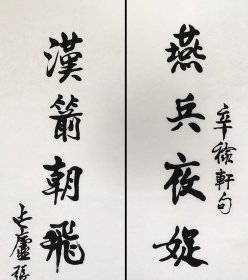 燕兵夜娖
辛稼軒句
漢箭朝飛
上虞張